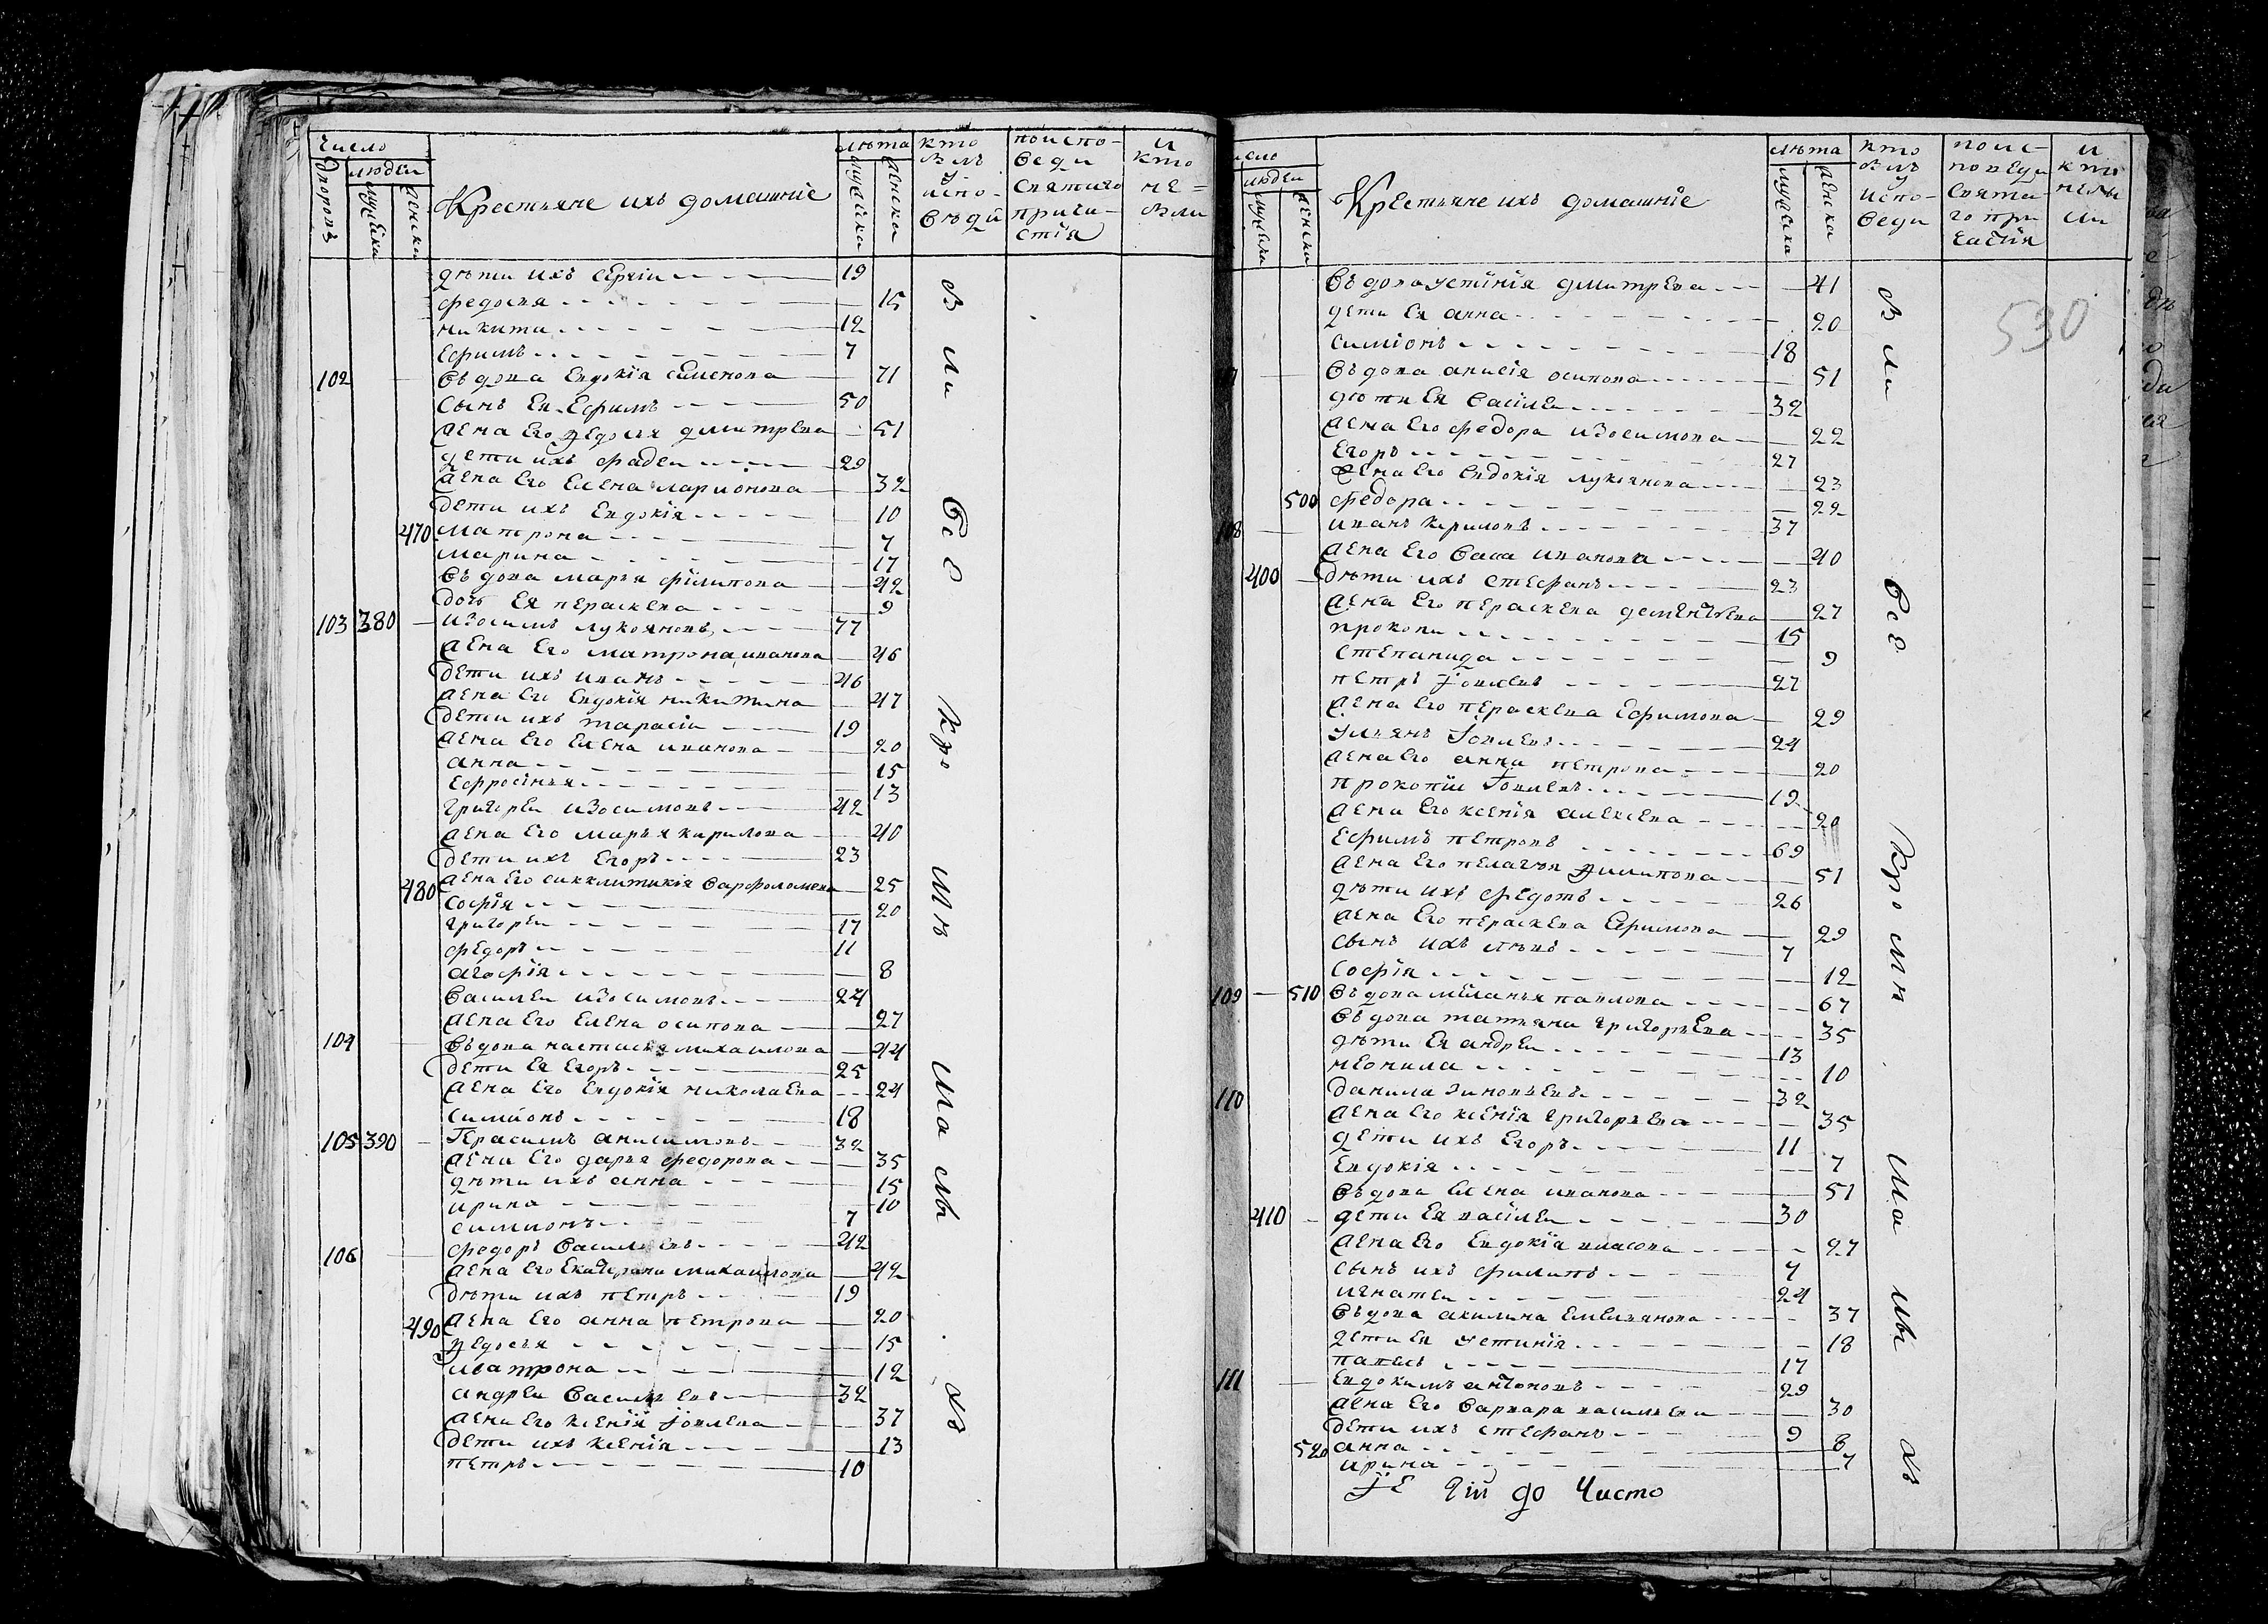 Число
Дворовъ
людей
мужеска
женска
Крестьяне ихъ домашние
лѣта
мужеска
женска
кто былъ у испо-вѣди
по испо-веди святаго прича-стїя
и кто не = были
дѣти ихъ Сергіи 19
федосия 15
никита 12
Ефимъ 7
102 вѣдова Евдокїя Симеонова 71
сынъ Ея Ефимъ 50
жена Его Федосия дмитрева 51
дети ихъ фадеи 29
жена Его Елена ларионова 32
дети ихъ Евдокїя 10
470 матрона 7
марина 17
вѣдова марья филипова 42
дочь Ея пераскева 9
103 380 изосимъ лукояновъ 77
жена Его матрона иванова 46
дети ихъ иванъ 46
жена Его Евдокїя никитина 47
дети ихъ тарасіи 19
жена Его Елена иванова 20
анна 15
Ефросїнья 13
григореи изосимовъ 42
жена Его марья кирилова 40
дети ихъ Егоръ 23
480 жена Его сикклитикїя варфоломеева 25
софїя 20
григореи 17
федоръ 11
агафїя 8
василеи изосимовъ 24
жена Его Елена осипова 27
104 вѣдова настасия михаилова 44
дети Ея Егоръ 25
жена Его Евдокїя николаева 24
симионъ 18
105 390 Герасимъ анисимовъ 32
жена Его дарья федорова 35
дѣти ихъ анна 15
ирина 10
симионъ 7
106 федоръ васильевъ 42
жена Его Екатерина михаилова 42
дѣти ихъ петръ 19
490 жена Его анна петрова 20
Федосья 15
матрона 12
андреи васильевъ 32
жена Его ксенїя Иовлева 37
дети ихъ ксенїя 13
петръ 10
Были всѣ кромѣ малыхъ
число
людеи
мужеска
женска
Крестьяне ихъ домашнїе
лѣта
мужеска
женска
кто былъ у испо-веди
по ис-поведи свята-го при частїя
и кто небы ли
530
вѣдова устїнїя дмитрева 41
дети Ея анна 20
симіонъ 18
7 вѣдова анисїя осипова 51
дѣти Ея василеи 32
жена Его федора изосимова 22
Егоръ 27
жена Его Евдокїя лукоянова 23
500 федора 22
108 иванъ кириловъ 37
жена Его васа иванова 40
400 дѣти ихъ стефанъ 23
жена Его пераскева дементьева 27
прокопи 15
степанида 9
петръ Иовлевъ 27
жена Его пераскева Ефимова 29
Ульянъ Иовлевъ 24
жена Его анна петрова 20
прокопїи Иовлевъ 19
жена Его ксенїя алексева 20
Ефимъ петровъ 69
жена Его пелагея Филипова 51
дѣти ихъ федотъ 26
жена Его пераскева Ефимова 29
сынъ ихъ лѣвъ 7
софїя 12
109 510 вѣдова меланья павлова 67
вѣдова татьяна григорьева 35
дѣти Ея андреи 13
неонила 10
110 данила зиновьевъ 32
жена Его ксенїя григорьева 35
дети ихъ Егоръ 11
Евдокїя 7
вѣдова Елена иванова 51
410 дети Ея василеи 30
жена Его Евдокїя власова 27
сынъ ихъ филипъ 7
игнатеи 24
вѣдова акилина Емельянова 37
дети Ея устинїя 18
павелъ 17
111 Евдокимъ антоновъ 29
жена Его варвара васильева 30
дети ихъ стефанъ 9
520 анна 8
ирина 7
до Чисто
Были всѣ кроми малыхъ